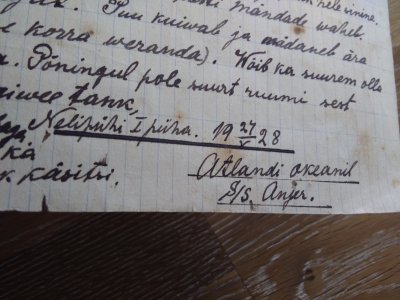 hele sinine.
mändade waheb.
Puu kuiwab ja mädaneb ära
korra weranda). Wõib ka suurem olla
Põningul pole suurt ruumi sest
tank,
Nelipühi I püha. 19 27/V 28
kä
käsitsi.
Atlandi okeanil
S/S. Anjer.